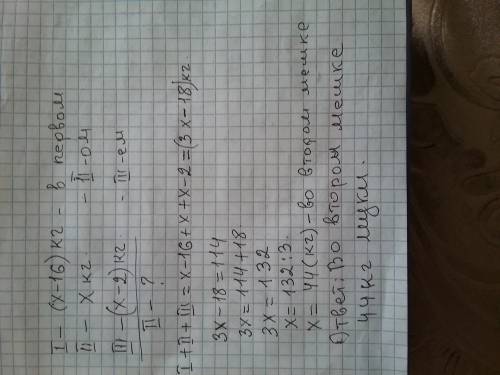 I - (x-16) кг - в первом
II - x кг. - II-ом
III - (x-2) кг. - III-ем
II - ?
I+II+III = x-16+x+x-2=(3x-18)кг
3x-18=114
3x=114+18
3x=132
x=132:3.
x=44(кг)-во втором мешке
Ответ: Во втором мешке
44кг муки.